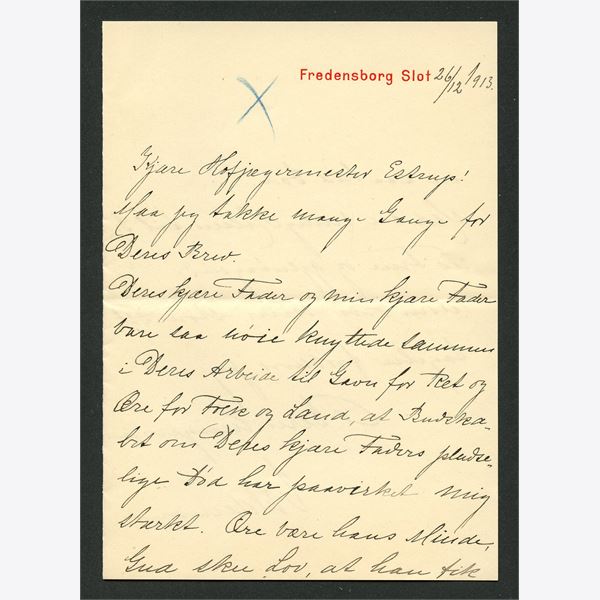 Fredensborg Slot 26/12 1913.
Kjære Hofjægermester Estrup!
Maa jeg takke mange Gange for
Deres Brev.
Deres kjære Fader og min kjære Fader
vare saa nöie knyttede sammen
i Deres Arbeide til Gavn for Ret og
Ære for Folk og Land, at Budska-
bet om Deres kjære Faders pludse-
lige Död har paavirket mig
stærkt. Ære være hans Minde,
Gud skee Lov, at han fik